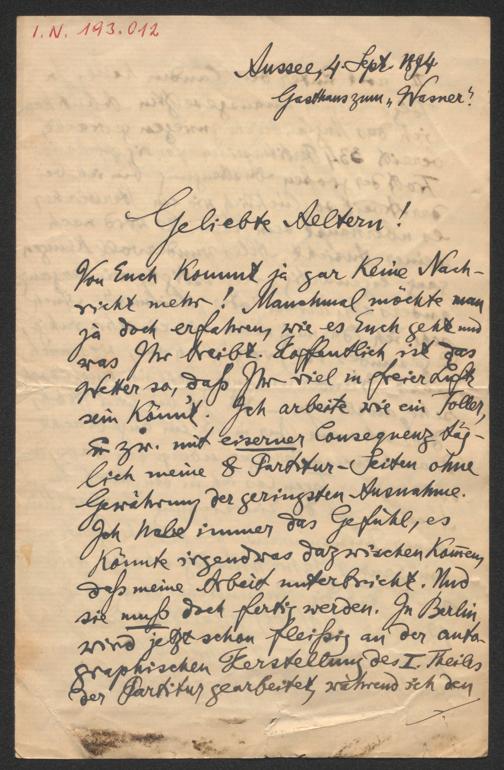 I.N. 193.012
Aussee, 4. Sept 1894
Gasthaus zum „Wasner“.
Geliebte Aeltern!
Von Euch kommt ja gar keine Nach-
richt mehr! Manchmal möchte man
ja doch erfahren, wie es Euch geht und
was Ihr treibt. Hoffentlich ist das
Wetter so, daß Ihr viel in freier Luft
sein könnt. Ich arbeite wie ein Toller,
u. zw. mit eiserner Consequenz täg-
lich meine 8 Partitur-Seiten ohne
Gewährung der geringsten Ausnahme.
Ich habe immer das Gefühl, es
könnte irgendwas dazwischen kom̅en,
das meine Arbeit unterbricht. Und
sie muß doch fertig werden. In Berlin
wird jetzt schon fleißig an der auto-
graphischen Herstellung des I. Theiles
der Partitur gearbeitet, während ich den